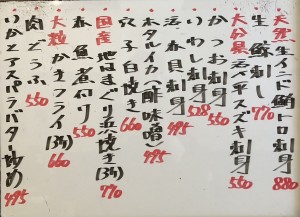 天然生インド鮪トロ刺身 880
生 刺し 770
大分県 活〆平スズキ刺身 550
かつお刺身 550
いわし刺身 528
貝刺身 495
ホタルイカ(酢味噌) 495
穴子白焼き 660
国産 地はまぐり浜焼き(3ヶ) 770
魚煮付 550
大粒 かきフライ(3ヶ) 660
肉どうふ 550
いかとアスパラバター炒め 495